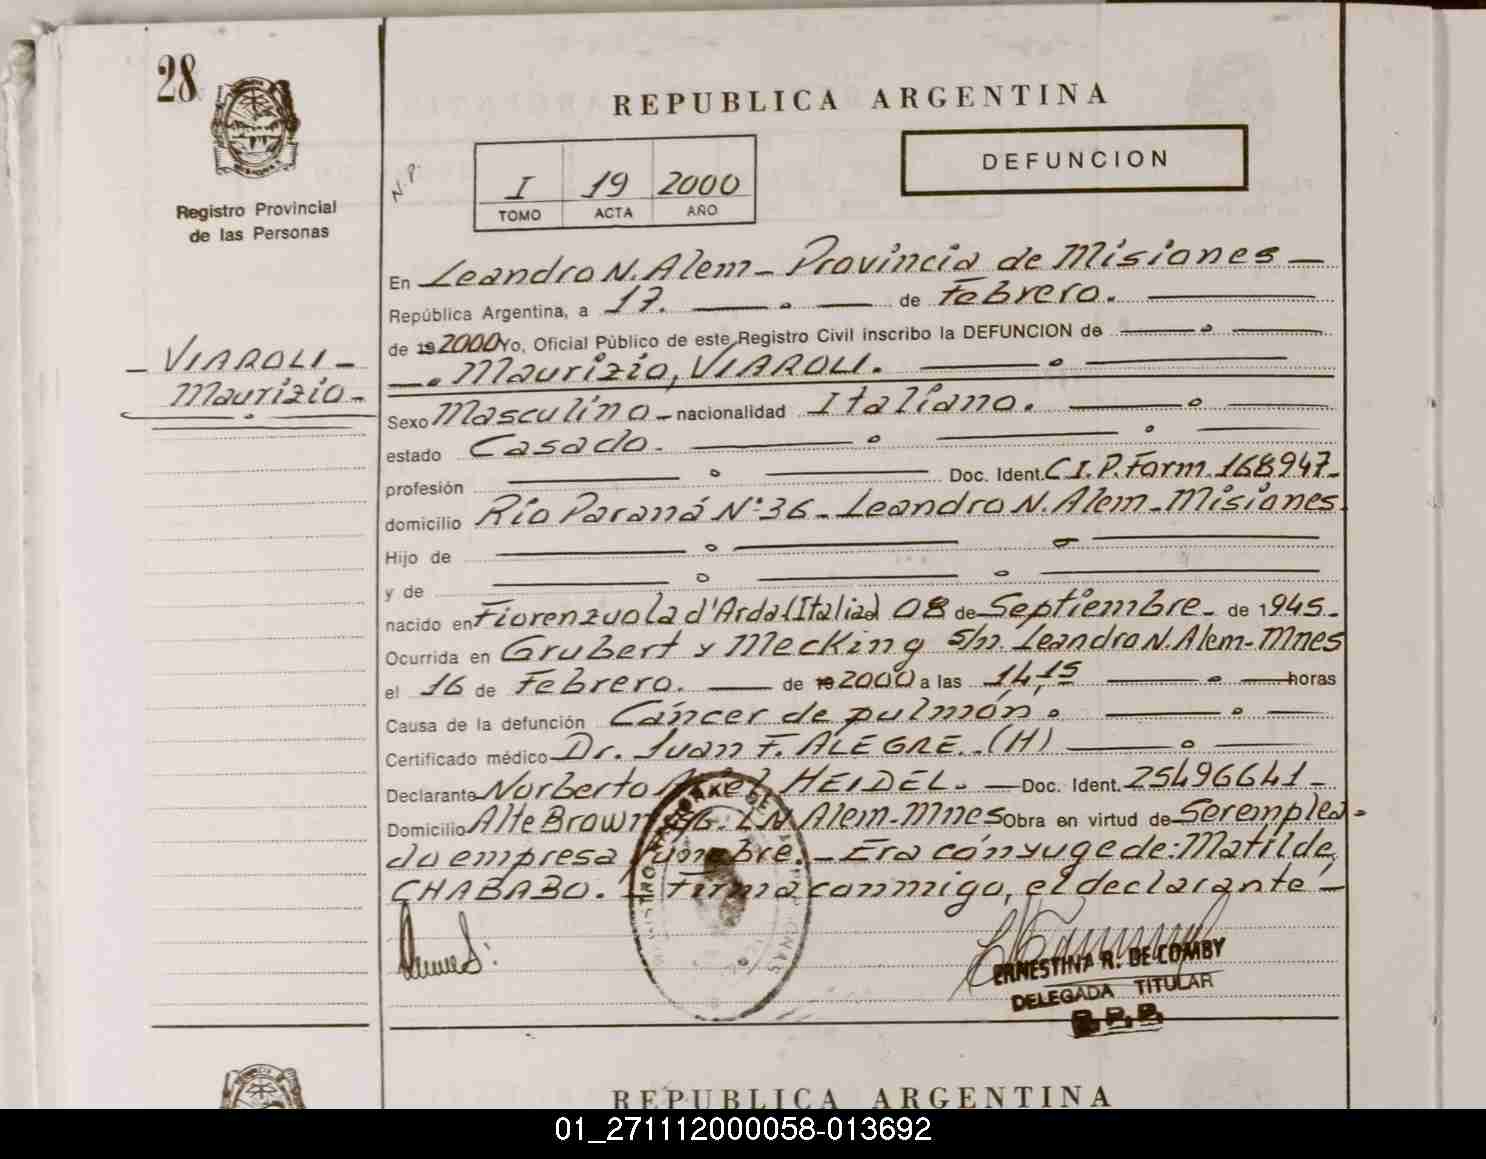 28
REPUBLICA ARGENTINA
DEFUNCION
N.P.
I 19 2000
TOMO ACTA AÑO
Registro Provincial
de las Personas
En Leandro N. Alem - Provincia de Misiones -
República Argentina, a 17. de Febrero.
de 192000 Yo, Oficial Público de este Registro Civil inscribo la DEFUNCION de
- VIAROLI -
Maurizio -
Maurizio, VIAROLI.
Sexo Masculino - nacionalidad Italiano.
estado Casado.
profesión Doc. Ident. C.I.P. Form. 168.947-
domicilio Río Paraná Nº 36 - Leandro N. Alem - Misiones.
Hijo de
y de
nacido en Fiorenzuola d'Arda (Italia) 08 de Septiembre - de 1945-
Ocurrida en Grubert y Mecking s/n. Leandro N. Alem - Mnes
el 16 de Febrero. de 192000 a las 14,15 horas
Causa de la defunción Cáncer de pulmón.
Certificado médico Dr. Juan F. ALEGRE. (H)
Declarante Norberto HEIDEL. Doc. Ident. 25496641 -
Domicilio Alte Brown L N Alem - Mnes Obra en virtud de Ser emplea-
do empresa fúnebre. - Era cónyuge de: Matilde,
CHABABO. - Firma conmigo, el declarante -
ERNESTINA R. DE COMBY
DELEGADA TITULAR
R.P.P.
REPUBLICA ARGENTINA
01_271112000058-013692